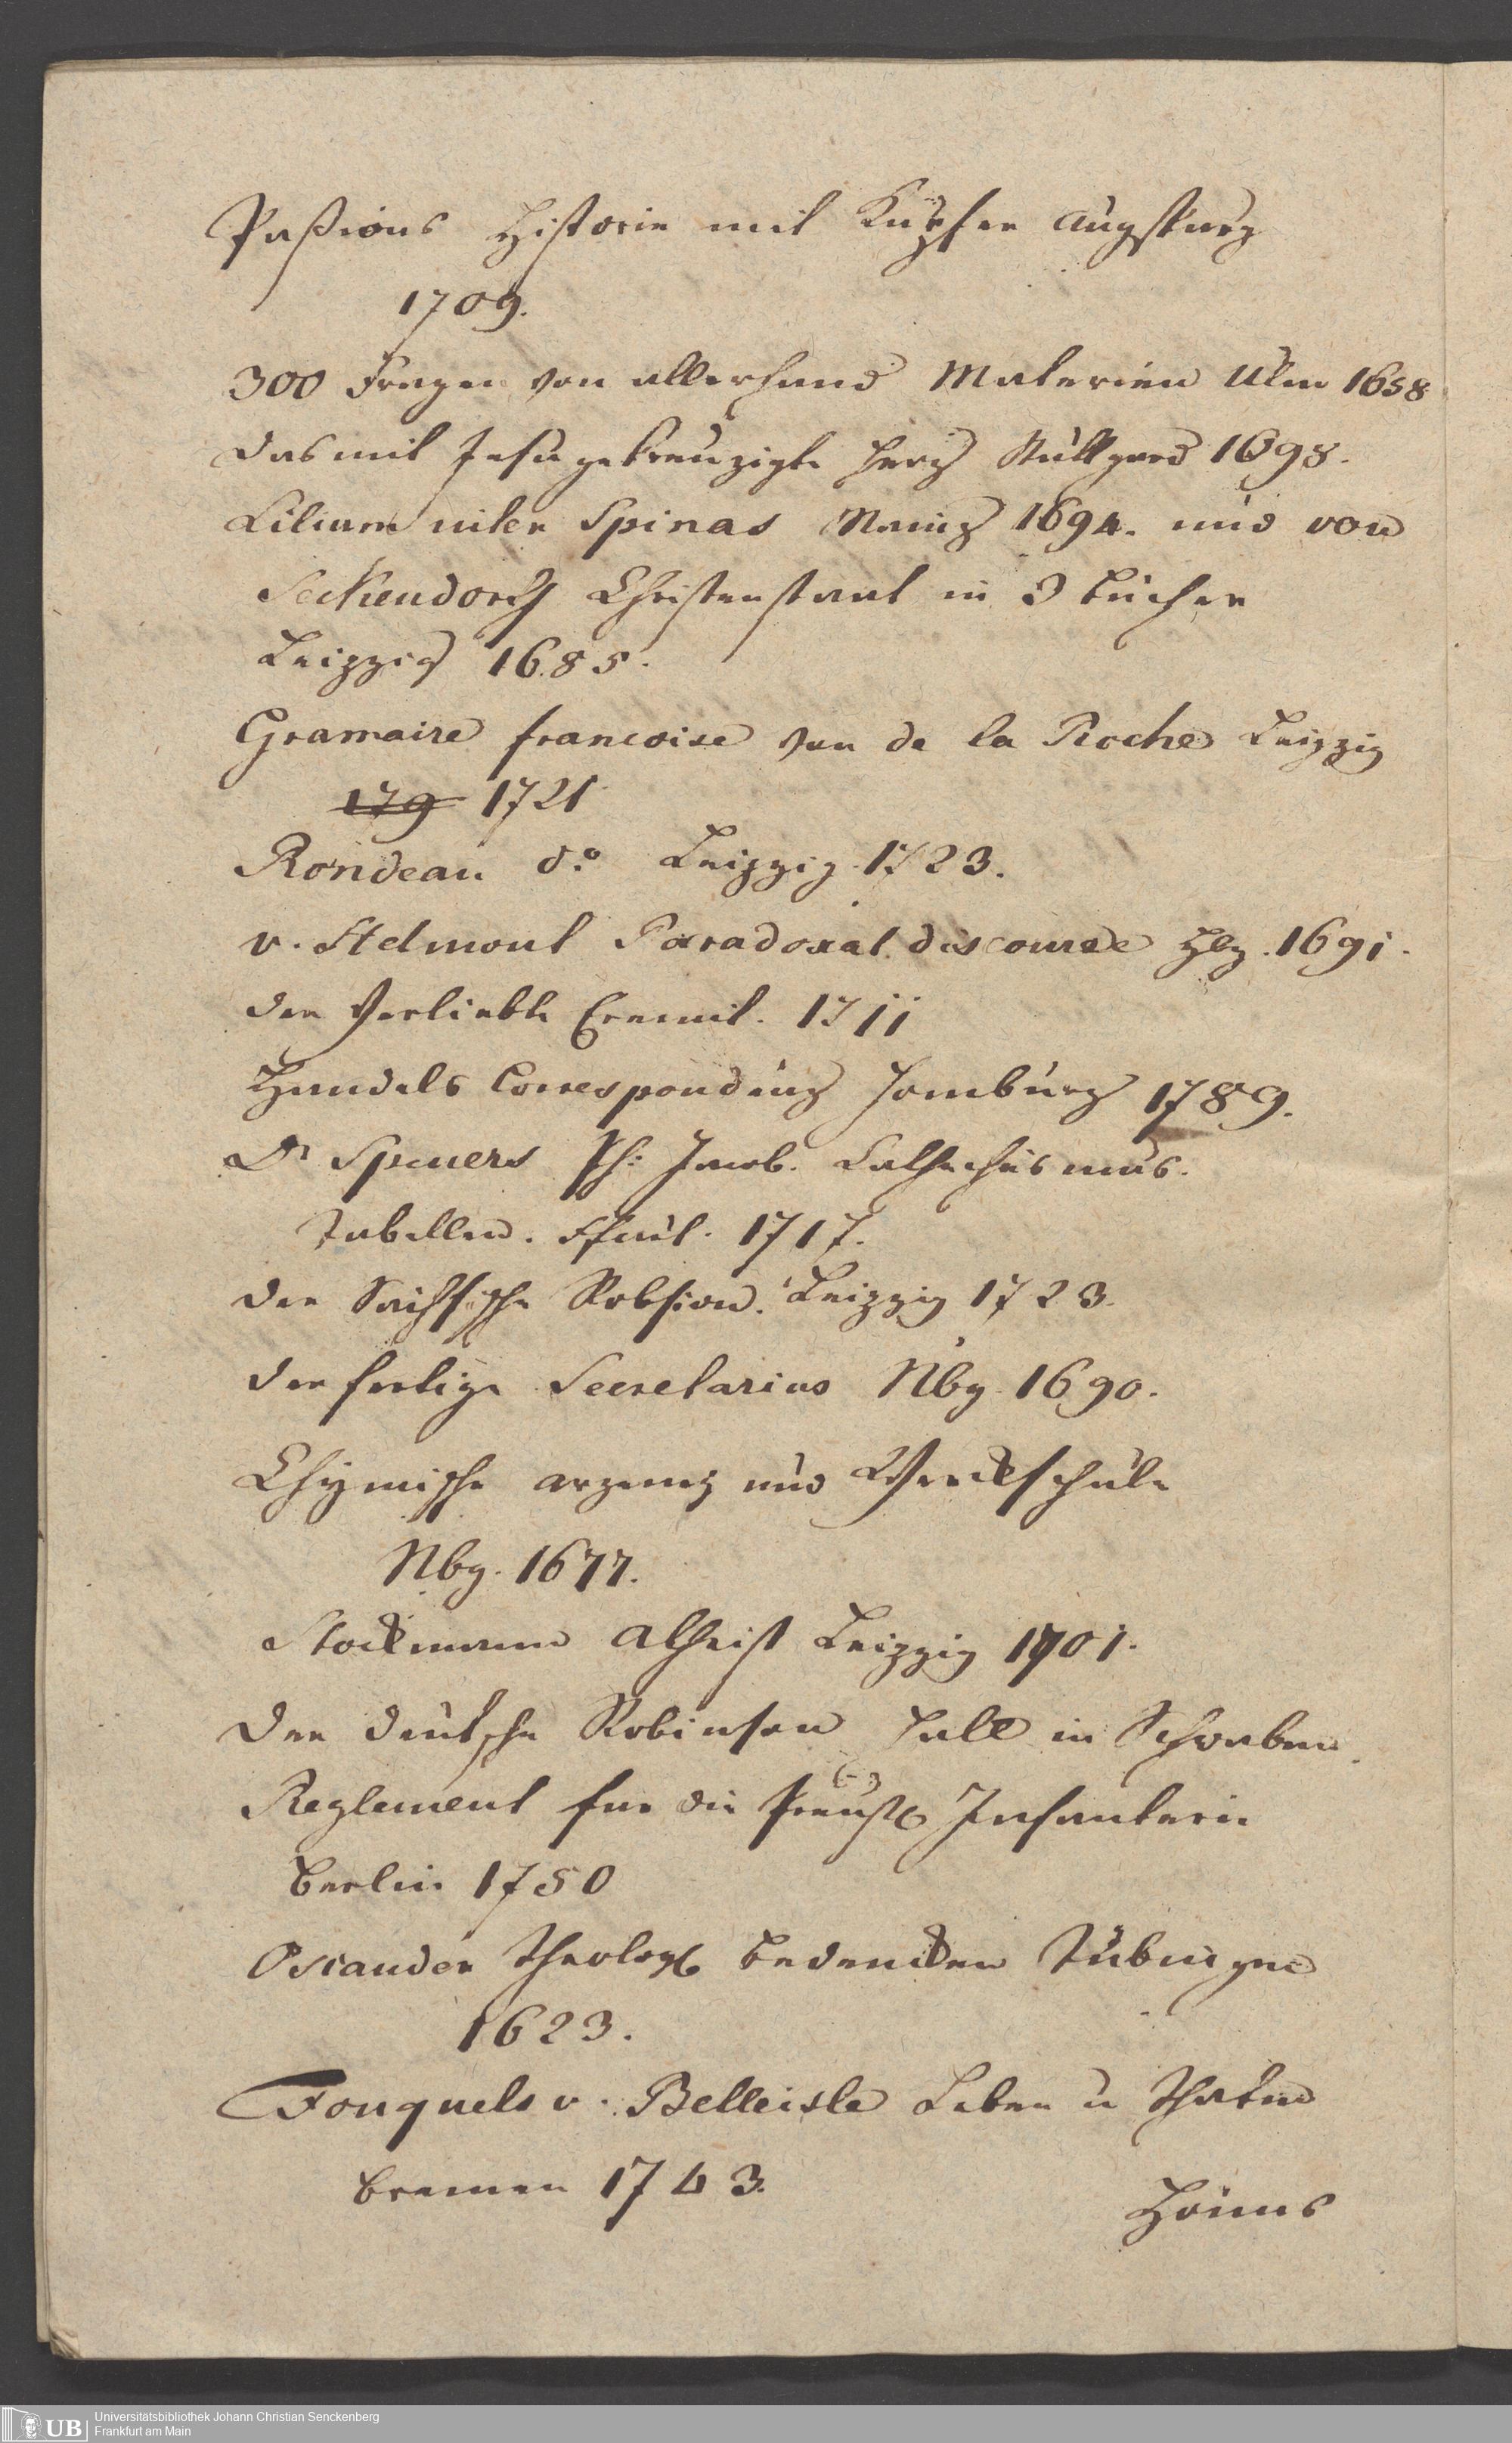 Paßions Historie mit Kupfer Augspurg
1709.
300 Fragen von allerhand Materien Ulm 1658
das mit Jesu gekreuzigte Herz Stuttgard 1698.
Lilium inter Spinas Mainz 1694. und von
Seckendorf Christenstaat in 3 Bücher
Leipzig 1685.
Gramaire francoise von de la Roche Leipzig
179 1721
Rondeau do Leipzig 1723.
v. Helmont Paradoxal discourse Hbg. 1691.
der Verliebte Eremit. 1711
Handels Correspondenz Hamburg 1789.
Dr Speners Ph: Jacob. Cathechismus.
Tabellen. Ffurt. 1717.
der Sächsische Robsion. Leipzig 1723.
der fertige Secretarius Nbg. 1690.
Chymische arzeney und Werckschule
Nbg. 1677.
Stockmann Atheist Leipzig 1701.
Der deutsche Robinson Hall in Schwaben.
Reglement für die Preuß Infanterie
Berlin 1750
Osiander theolog Bedencken Tübingen
1623.
Fouquets v. Belleisle Leben u Thaten
Bremen 1743.
Hönns
Universitätsbibliothek Johann Christian Senckenberg
Frankfurt am Main
UB